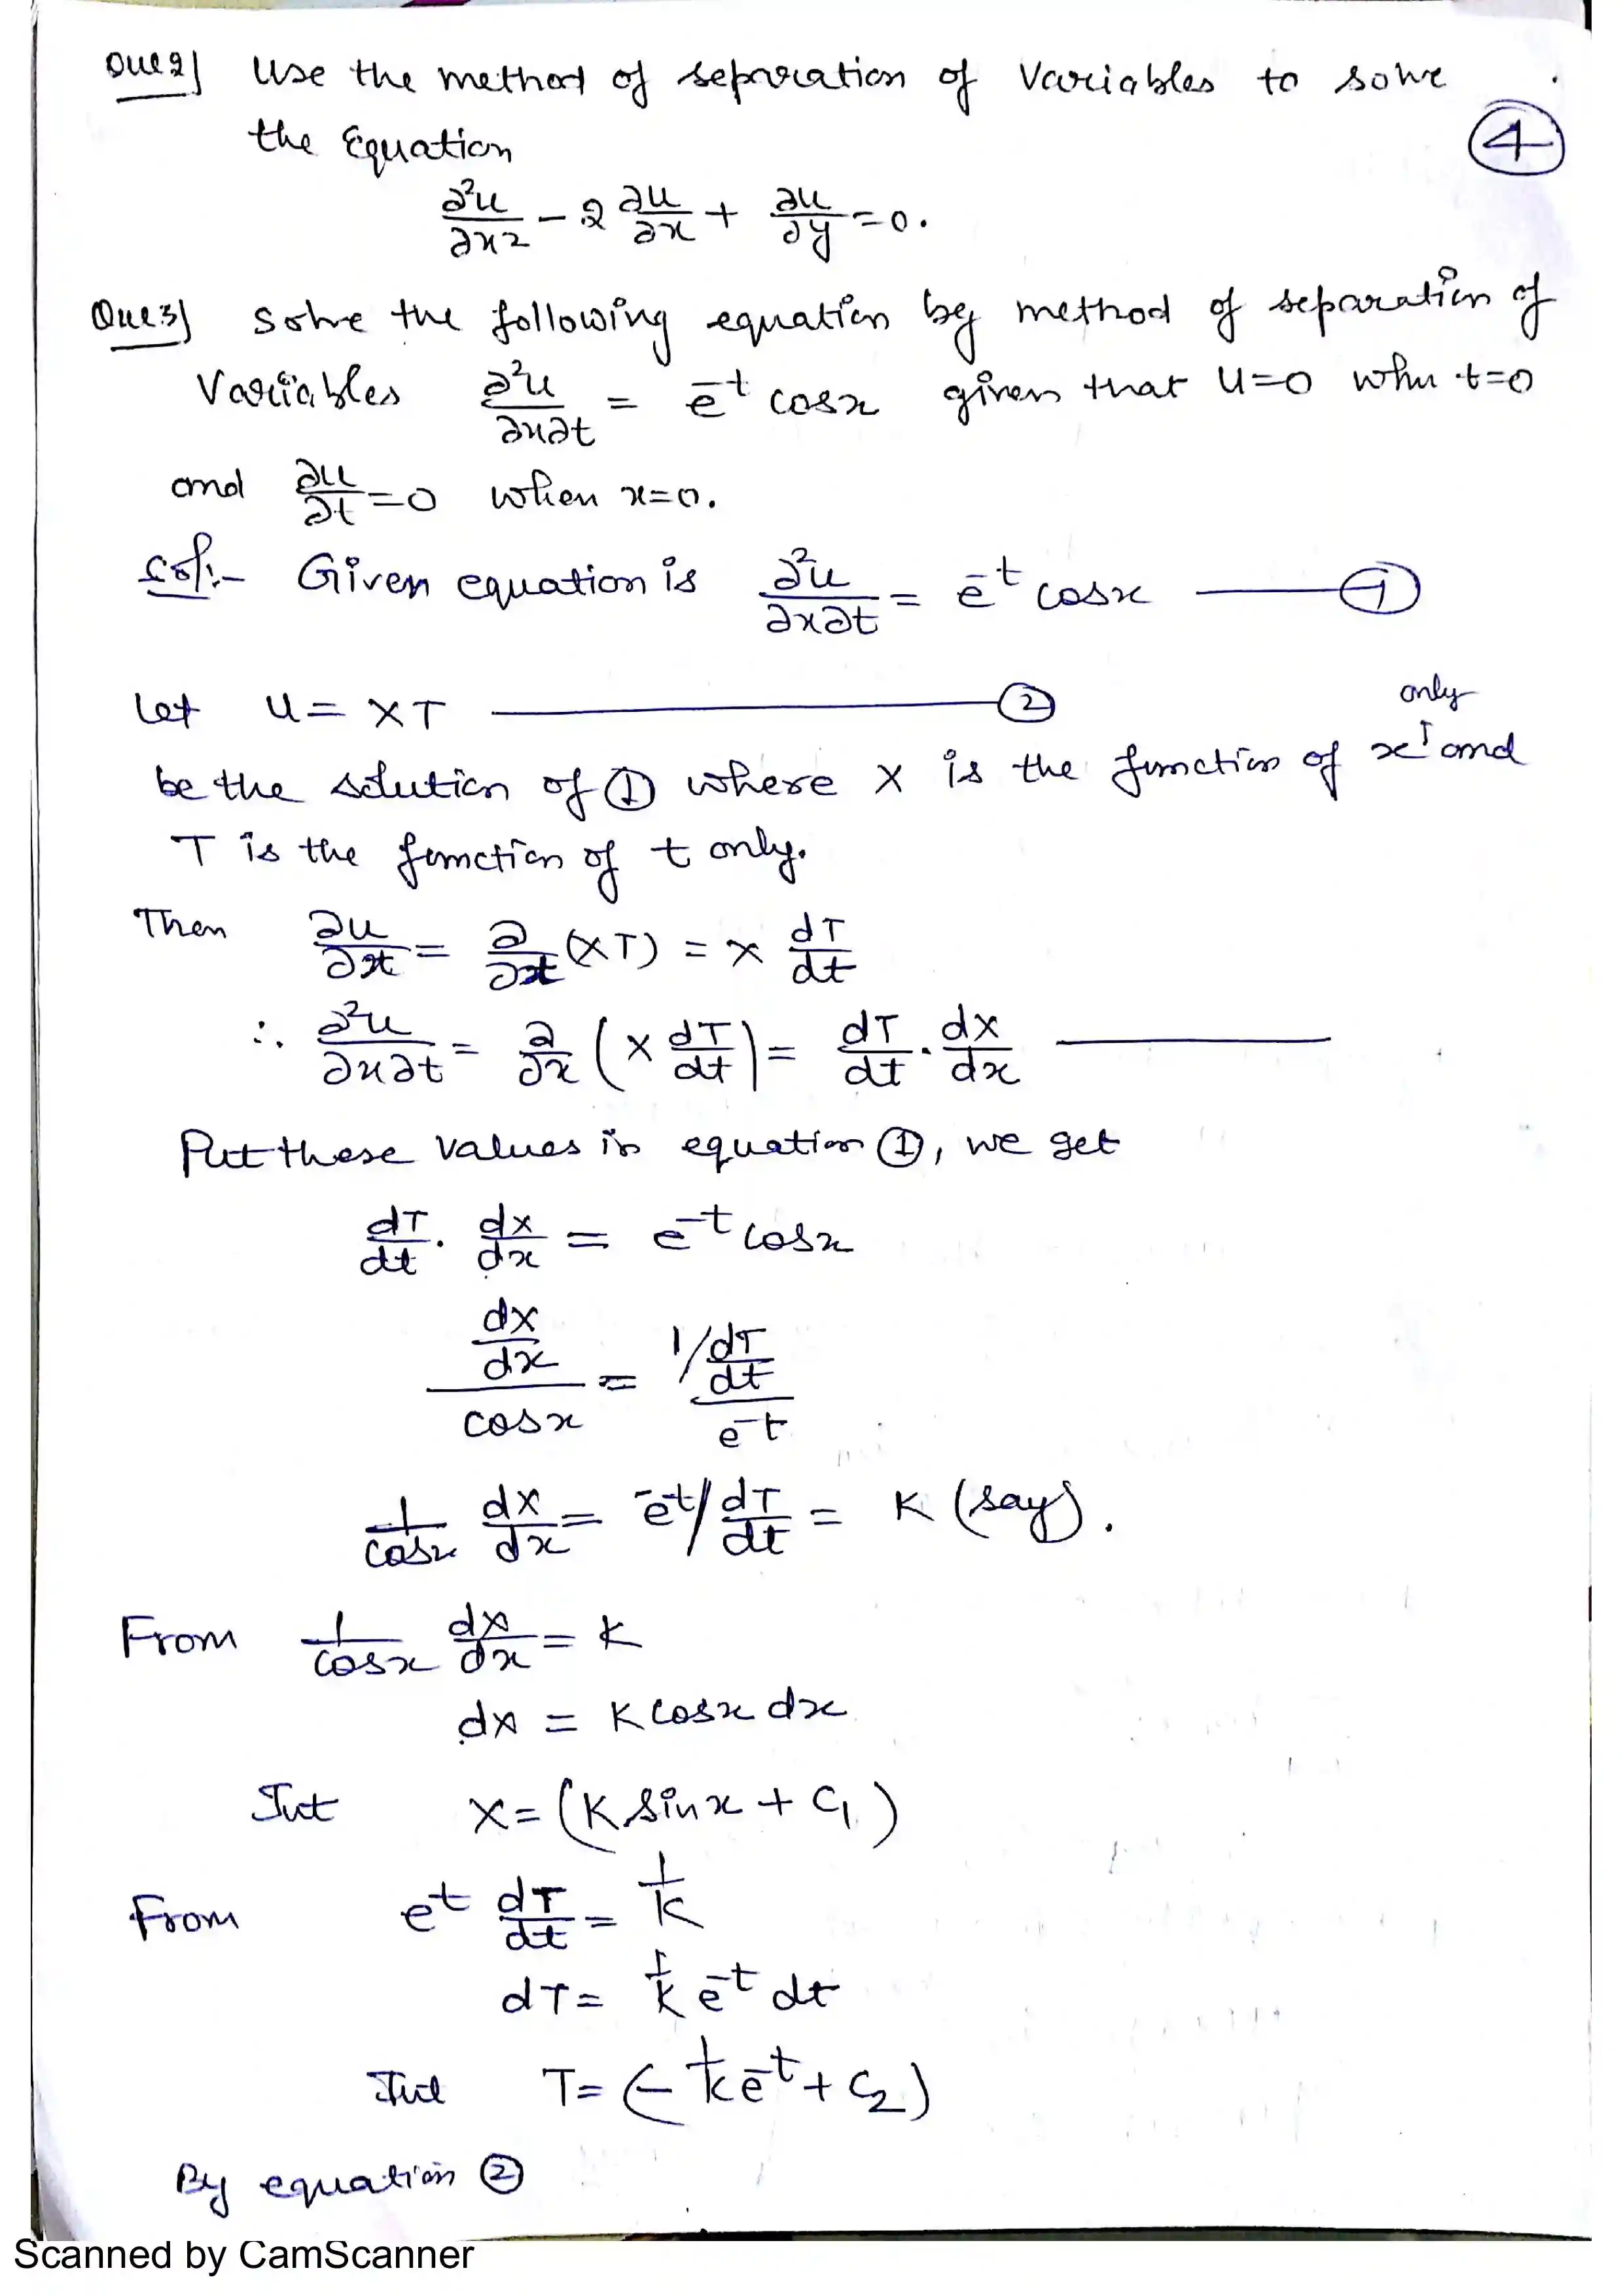 Que 2) Use the method of separation of Variables to solve
the Equation
④
∂²u/∂x² - 2 ∂u/∂x + ∂u/∂y = 0.
Que 3) Solve the following equation by method of separation of
Variables ∂²u/∂x∂t = e^-t cosx given that U=0 when t=0
and ∂u/∂t = 0 when x=0.
Sol:- Given equation is ∂²u/∂x∂t = e^-t cosx —— ①
Let u = XT —— ②
be the solution of ① where X is the function of x only and
T is the function of t only.
Then ∂u/∂t = ∂/∂t (XT) = X dT/dt
∴ ∂²u/∂x∂t = ∂/∂x (X dT/dt) = dT/dt . dX/dx ——
Put these values in equation ①, we get
dT/dt . dX/dx = e^-t cosx
(dX/dx)/cosx = 1/((dT/dt)/e^-t)
1/cosx dX/dx = e^-t / dT/dt = K (say).
From 1/cosx dX/dx = K
dX = K cosx dx
Int X = (K sinx + C1)
From e^t dT/dt = 1/K
dT = 1/K e^-t dt
Int T = (- 1/K e^-t + C2)
By equation ②
Scanned by CamScanner